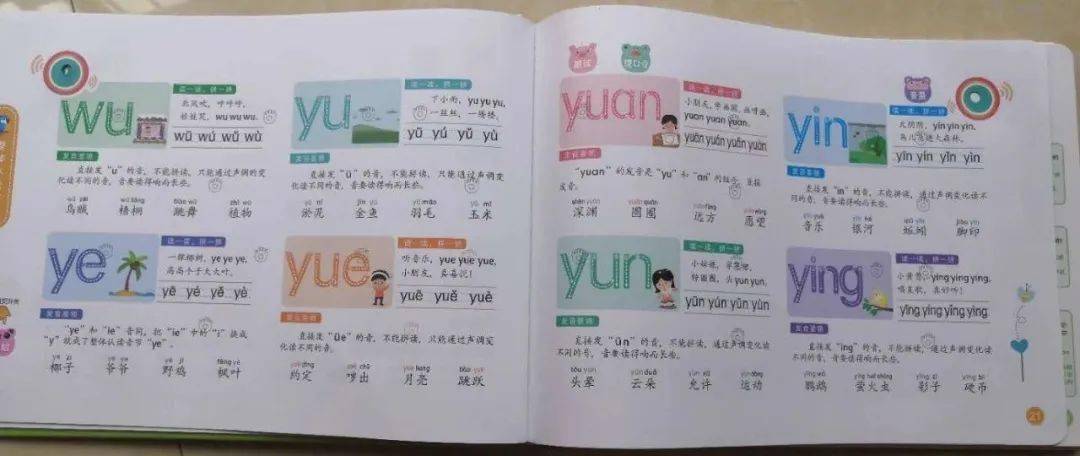 wu
读一读，拼一拼
北风吹，呼呼呼，
wu wu wu。
wū wú wǔ wù
发音要领
直接发“u”的音，不能拼读，只能通过声调的变
化读不同的音，音要读得响而长些。
wū zéi wú tóng tiào wǔ zhí wù
乌贼 梧桐 跳舞 植物
yu
读一读，拼一拼
下小雨，yu yu yu，
一丝丝，一缕缕。
yū yú yǔ yù
发音要领
直接发“ü”的音，不能拼读，只能通过声调变
化读不同的音，音要读得响而长些。
yū ní jīn yú yǔ máo yù mǐ
淤泥 金鱼 羽毛 玉米
ye
读一读，拼一拼
一棵椰树，ye ye ye，
高高个子大大叶。
yē yé yě yè
发音要领
“ye”和“ie”音同，把“ie”中的“i”换成
“y”就成了整体认读音节“ye”。
yē zi yé ye yě jī fēng yè
椰子 爷爷 野鸡 枫叶
yue
读一读，拼一拼
听音乐，yue yue yue，
小朋友，真喜悦！
yuē yuě yuè
发音要领
直接发“üe”的音，不能拼读，只能通过声调变
化读不同的音。
yuē dìng yuě chū yuè liang tiào yuè
约定 哕出 月亮 跳跃
跟读
绕口令
yuan
读一读，拼一拼
小朋友，学画圆，画呀画，
yuan yuan yuan。
yuān yuán yuǎn yuàn
发音要领
“yuan”的发音是“yu”和“an”的组合，直接
发音。
shēn yuān yuǎn fāng yuàn wàng
深渊 圈圈 远方 愿望
音乐
yin
读一读，拼一拼
天阴阴，yin yin yin，
鸟儿飞进大森林。
yīn yín yǐn yìn
发音要领
直接发“in”的音，不能拼读，通过声调变化读不
同的音，音要读得响而长些。
yīn yuè yín hé qiū yǐn jiǎo yìn
音乐 银河 蚯蚓 脚印
yun
读一读，拼一拼
小姑娘，
转圆圈，头yun yun。
yūn yún yǔn yùn
发音要领
直接发“ün”的音，不能拼读，通过声调变化读
不同的音，音要读得响而长些。
tóu yūn yún duǒ yǔn xǔ yùn dòng
头晕 云朵 允许 运动
ying
读一读，拼一拼
小黄莺，ying ying ying，
唱呈歌，真好听！
yīng yíng yǐng yìng
发音要领
直接发“ing”的音，不能拼读，通过声调变化读
不同的音，音要读得响而长些。
yīng wǔ yíng huǒ chóng yǐng zi yìng bì
鹦鹉 萤火虫 影子 硬币
21